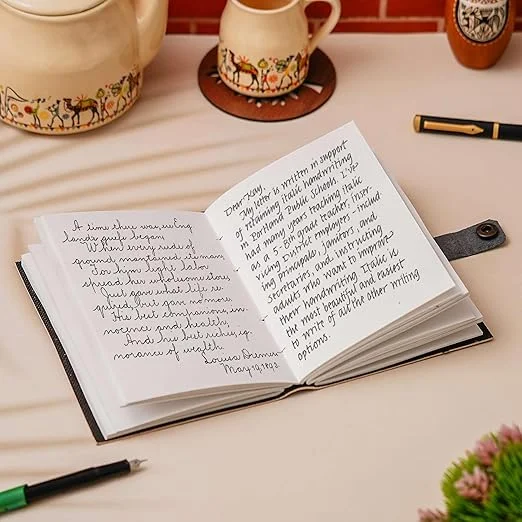 A time there was, ere Eng
lands griefs began,
When every rude of
ground maintained its man;
For him light labor
spread her wholesome store,
Just gave what life re
quired but gave no more.
His best companions, in
nocence and health,
And his best riches, ig
norance of wealth.
Louisa
May 19, 1892
Dear Kay,
My letter is written in support
of retaining italic handwriting
in Portland Public Schools. I've
had many years teaching italic
as a 5-8th grade teacher, inser-
vicing District employees - includ-
ing principals, janitors, and
secretaries, and instructing
adults who want to improve
their handwriting. Italic is
the most beautiful and easiest
to write of all the other writing
options.